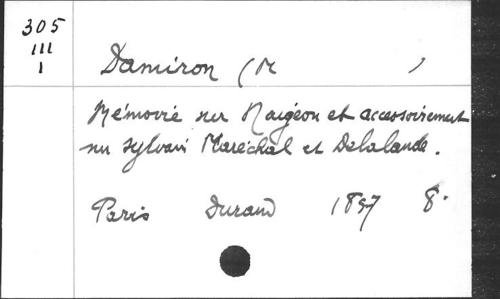 305
III
1
Damiron (M )
Mémoire sur Naigeon et accessoirement
sur Sylvain Maréchal et Delalande.
Paris Durand 1857 8°